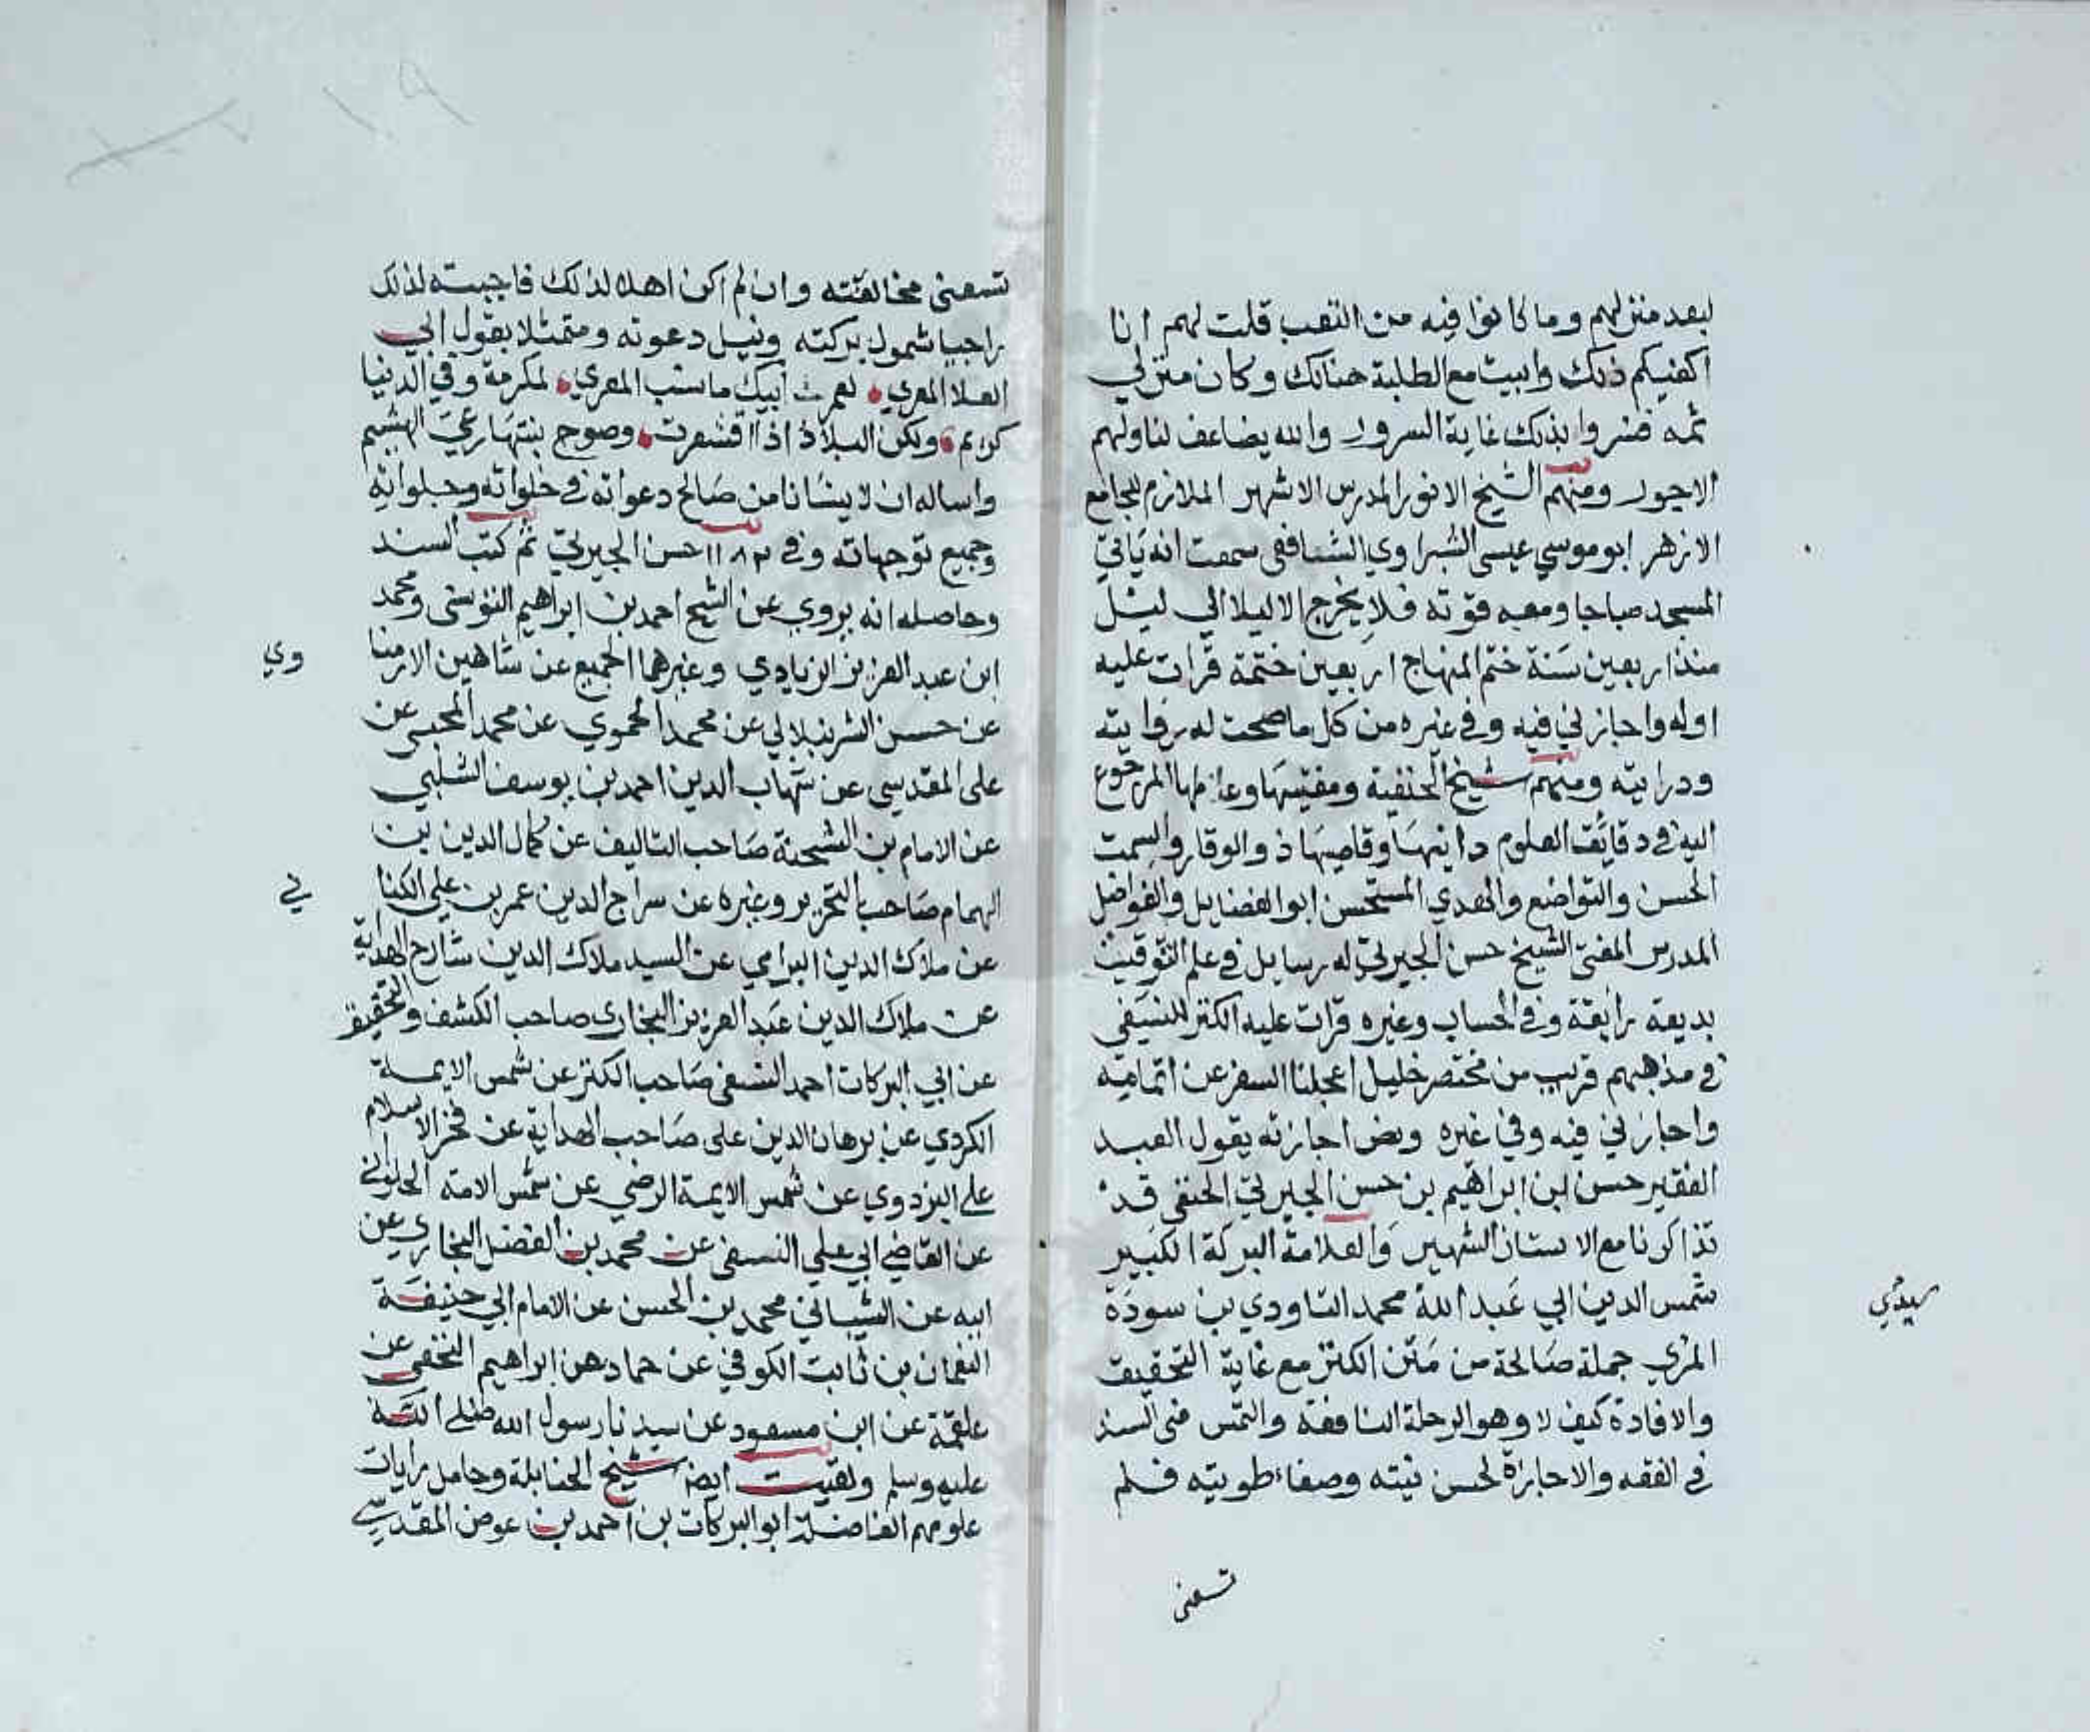 لبعد منزلهم وما كانوا فيه من التعب قلت لهم انا
اكفيكم ذلك وابيت مع الطلبة هنالك وكان منزلي
ثمه فسروا بذلك غاية السرور والله يضاعف لنا ولهم
الاجور ومنهم الشيخ الانور المدرس الاشهر الملازم للجامع
الازهر ابو موسي عيسى الشبراوي الشافعي سمعت انه ياتي
المسجد صباحا ومعه قوته فلا يخرج الا ليلا الي
منذ اربعين سنة ختم المنهاج اربعين ختمة قرات عليه
اوله واجازني فيه وفي غيره من كل ما صحت له روايته
ودرايته ومنهم شيخ الحنفية ومفتيها وعالمها المرجوع
اليه في دقائق العلوم دانيها وقاصيها ذو الوقار والسمت
الحسن والتواضع والهدي المستحسن ابو الفضايل والفواضل
المدرس المفتي الشيخ حسن الجبرتي له رسايل في علم التوقيت
بديعة رايقة وفي الحساب وغيره قرات عليه الكنز للنسفي
في مذهبهم قريب من مختصر خليل اعجلنا السفر عن اتمامه
واجازني فيه وفي غيره ونص اجازته يقول العبد
الفقير حسن ابن ابراهيم بن حسن الجبرتي الحنفي قد
تذاكرنا مع الاستاذ الشهير والعلامة البركة الكبير
شمس الدين ابي عبد الله محمد التاودي بن سودة
سيدي
المري جملة صالحة من متن الكنز مع غاية التحقيق
والافادة كيف لا وهو الرحلة النافعة والتمس مني السند
في الفقه والاجازة لحسن نيته وصفاء طويته فلم
تسعني
تسعني مخالفته وان لم اكن اهلا لذلك فاجبته لذلك
راجيا شمول بركته ونيل دعوته ومتمثلا بقول ابي
العلا المعري لعمر ابيك ما نسب المعري لمكرمة وفي الدنيا
كريم ولكن البلاد اذا اقشعرت وصوح نبتها رعي الهشيم
واساله ان لا ينسانا من صالح دعواته في خلواته وجلواته
وجميع توجهاته وفي ١١٨٢ حسن الجبرتي ثم كتب السند
وحاصله انه يروي عن الشيخ احمد بن ابراهيم التونسي ومحمد
ابن عبد العزيز الزيادي وغيرهما الجميع عن شاهين الارمنا
وي
عن حسن الشرنبلالي عن محمد الحموي عن محمد المحبي عن
على المقدسي عن شهاب الدين احمد بن يوسف الشلبي
عن الامام بن الشحنة صاحب التاليف عن كمال الدين بن
الهمام صاحب التحرير وغيره عن سراج الدين عمر بن علي الكنا
ني
عن ملاك الدين البرامي عن السيد ملاك الدين شارح الهداية
عن ملاك الدين عبد العزيز البخاري صاحب الكشف والتحقيق
عن ابي البركات احمد النسفي صاحب الكنز عن شمس الايمة
الكردي عن برهان الدين على صاحب الهداية عن فخر الاسلام
علي البزدوي عن شمس الايمة الرضي عن شمس الامة الحلواني
عن القاضي ابي علي النسفي عن محمد بن الفضل البخاري عن
ابيه عن الشيباني محمد بن الحسن عن الامام ابي حنيفة
النعمان بن ثابت الكوفي عن حماد عن ابراهيم النخعي عن
علقمة عن ابن مسعود عن سيدنا رسول الله صلي الله
عليه وسلم ولقيت ايضا شيخ الحنابلة وحامل رايات
علومهم الفاضلة ابو البركات بن احمد بن عوض المقدسي